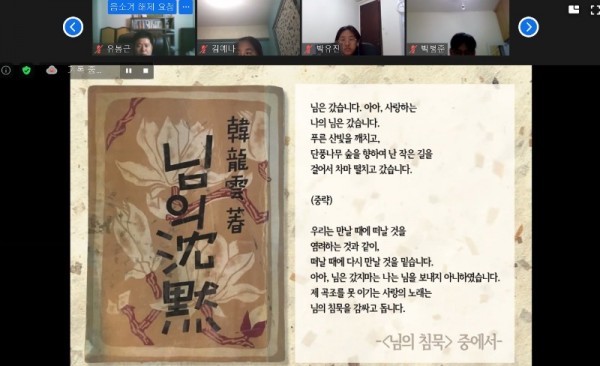 음소거 해제 요청
유봉근
김예나
박유진
韓龍雲著
님의沈默
님은 갔습니다. 아아, 사랑하는
나의 님은 갔습니다.
푸른 산빛을 깨치고,
단풍나무 숲을 향하여 난 작은 길을
걸어서 차마 떨치고 갔습니다.
(중략)
우리는 만날 때에 떠날 것을
염려하는 것과 같이,
떠날 때에 다시 만날 것을 믿습니다.
아아, 님은 갔지마는 나는 님을 보내지 아니하였습니다.
제 곡조를 못 이기는 사랑의 노래는
님의 침묵을 감싸고 돕니다.
-<님의 침묵> 중에서-